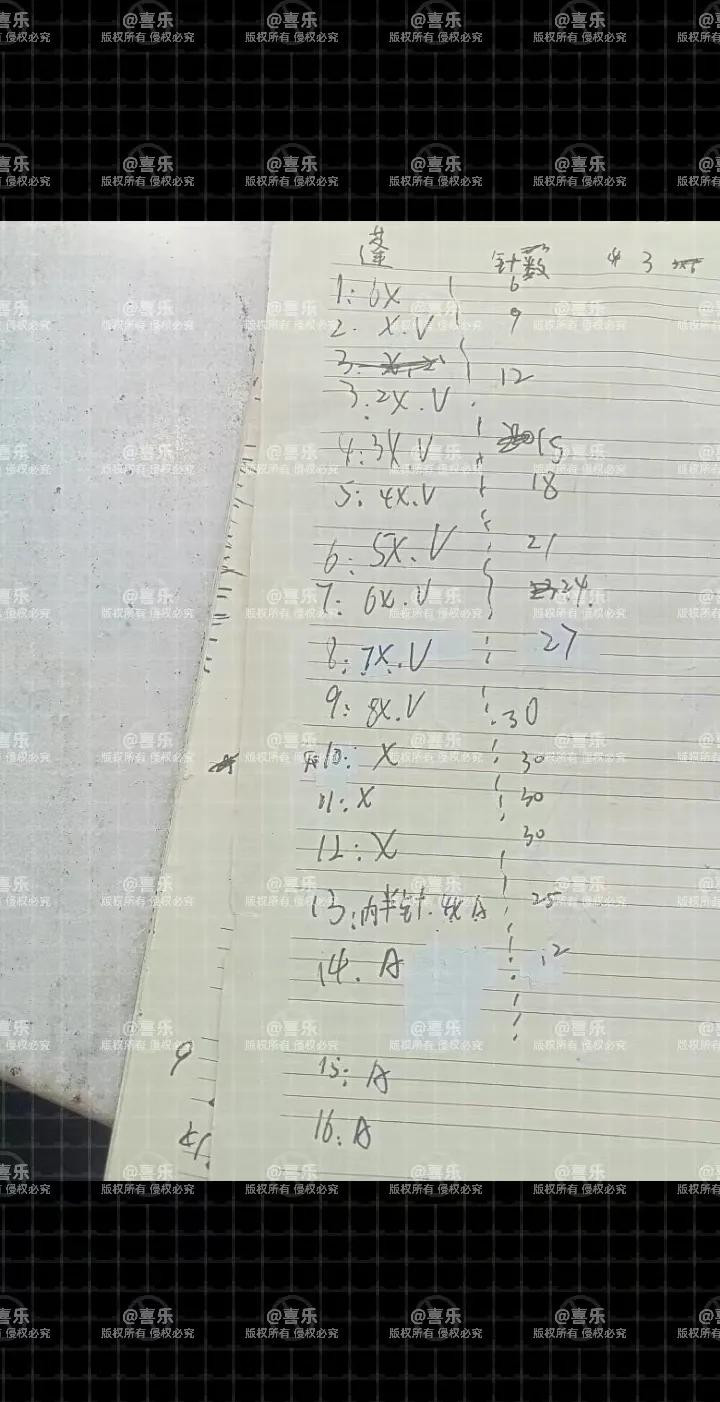 @喜乐
版权所有 侵权必究
莲 针数 # 3
1: 6X 6
2. X.V 9
3.2X.V 12
4:3X.V 15
5: 4X.V 18
6: 5X.V 21
7: 6X.V 24
8: 7X.V 27
9: 8X.V 30
10: X 30
11: X 30
12: X 30
13: 内半针.4X A 25
14. A 12
15: A
16: A
9